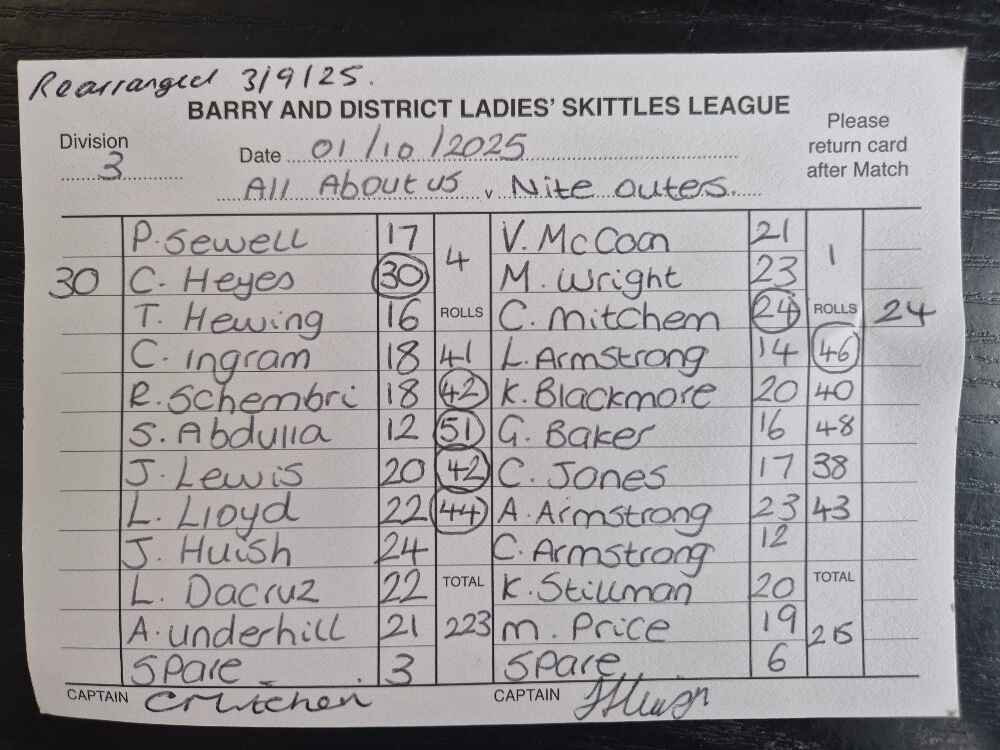 Rearranged 3/9/25.
BARRY AND DISTRICT LADIES' SKITTLES LEAGUE
Division
3
Date 01/10/2025
Please
return card
after Match
All About us v Nite outers.
P. Sewell 17 4 V. McCoon 21 1
30 C. Heyes 30 M. Wright 23
T. Hewing 16 ROLLS C. Mitchem 24 ROLLS 24
C. Ingram 18 41 L. Armstrong 14 46
R. Schembri 18 42 K. Blackmore 20 40
S. Abdulla 12 51 G. Baker 16 48
J. Lewis 20 42 C. Jones 17 38
L. Lloyd 22 44 A. Armstrong 23 43
J. Huish 24 C. Armstrong 12
L. Dacruz 22 TOTAL K. Stillman 20 TOTAL
A. underhill 21 223 M. Price 19 215
Spare 3 Spare 6
CAPTAIN CMitchem CAPTAIN